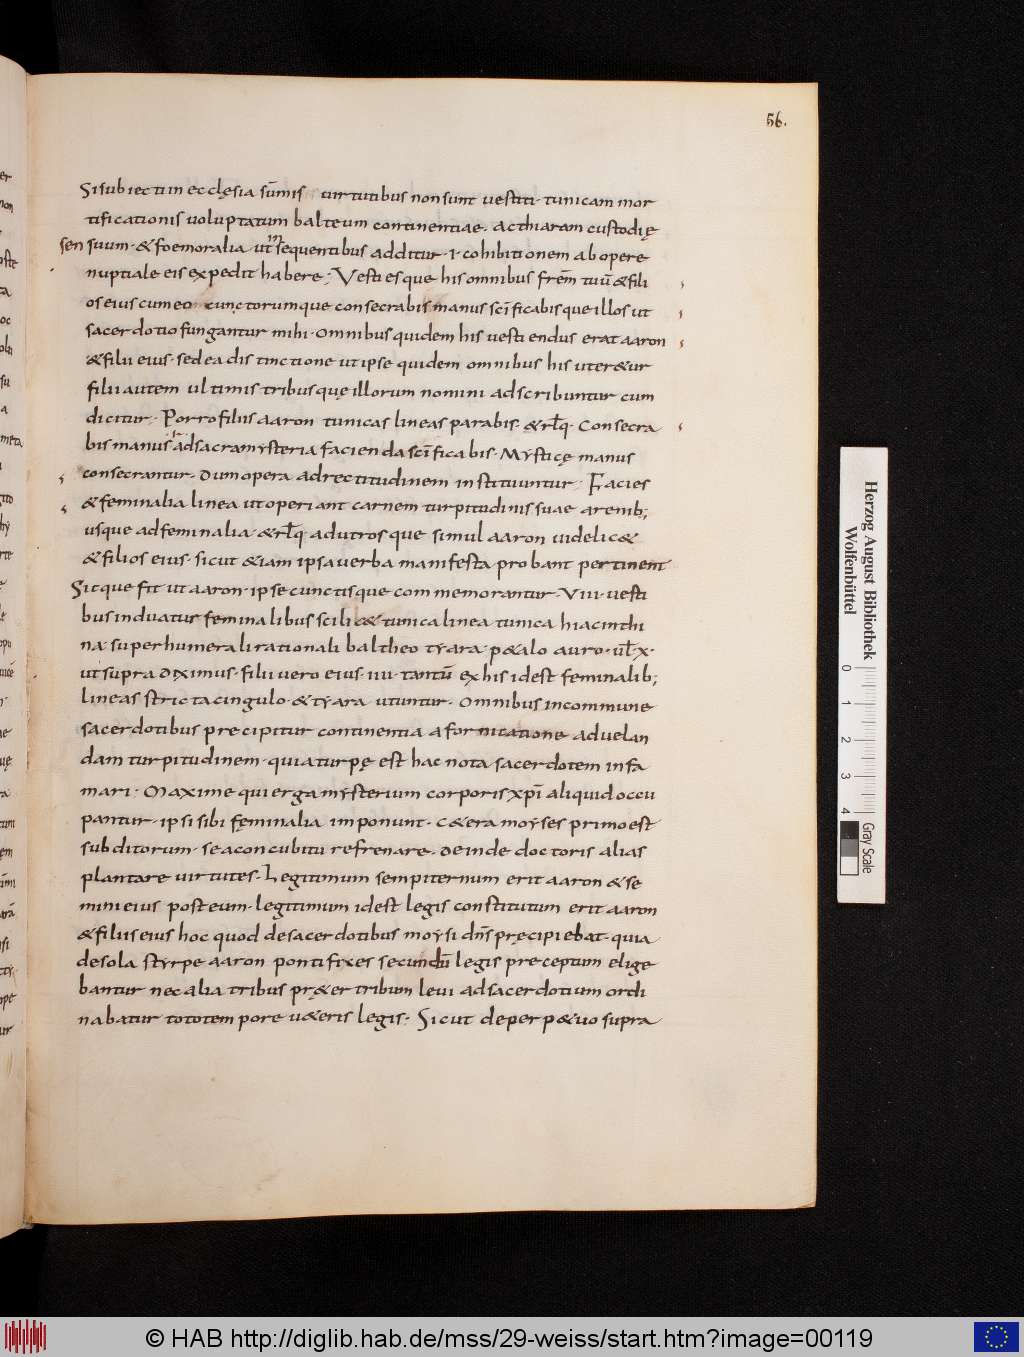 56.
Si subiecti in ecclęsia sūmis uirtutibus non sunt uestiti· tunicam mor
tificationis voluptatum balteum continentiae· ac thiaram custodię
sensuum· & foemoralia ut in sequentibus additur· ı· cohibitionem ab opere
nuptiale eis expedit habere; Vestiesque his omnibus frēm tuū & fili
os eius cum eo cunctorumque consecrabis manus scīficabisque illos ut
sacerdotio fungantur mihi· Omnibus quidem his uestiendus erat aaron
& filii eius· sed ea distinctione ut ipse quidem omnibus his uter&ur
filii autem ultimis tribus quę illorum nomini adscribuntur cum
dicitur; Porro filiis aaron tunicas lineas parabis· & rl̄q· Consecra
bis manus ad sacra mysteria facienda scīficabis· Mysticę manus
consecrantur· dum opera ad rectitudinem instituuntur; Facies
& feminalia linea ut operiant carnem turpitudinis suae a renib;
usque ad feminalia· & rl̄q· ad utrosque simul aaron uidelic&
& filios eius· sicut &iam ipsa verba manifesta probant pertinent
Sicque fit ut aaron· ipse cunctisque commemorantur· VIII· vesti
bus induatur feminalibus scilic& tunica linea tunica hiacinthi
na· superhumerali rationali baltheo tyara· p&alo auro· ul̄· x·
ut supra diximus· filii vero eius· IIII· tantū ex his idest feminalib;
lineas stricta cingulo· & tyara utuntur· Omnibus in commune
sacerdotibus precipitur continentia a fornicatione ad uelan
dam turpitudinem· quia turpę est hac nota sacerdotem infa
mari· Maxime qui erga mysterium corporis xp̄i aliquid occu
pantur· ipsi sibi fęminalia imponunt· c&era moyses primo est
subditorum· se a concubitu refrenare· deinde doctoris alias
plantare uirtutes· Legitimum sempiternum erit aaron & se
mini eius post eum· legitimum idest legis constitutum erit aaron
& filiis eius hoc quod de sacerdotibus moysi dn̄s pręcipiebat· quia
de sola styrpe aaron pontifices secundū legis preceptum elige
bantur nec alia tribus pr&er tribum leui ad sacerdotium ordi
nabatur toto tempore u&eris legis· Sicut de perp&uo supra
Herzog August Bibliothek
Wolfenbüttel
0 1 2 3 4
Gray Scale
© HAB http://diglib.hab.de/mss/29-weiss/start.htm?image=00119